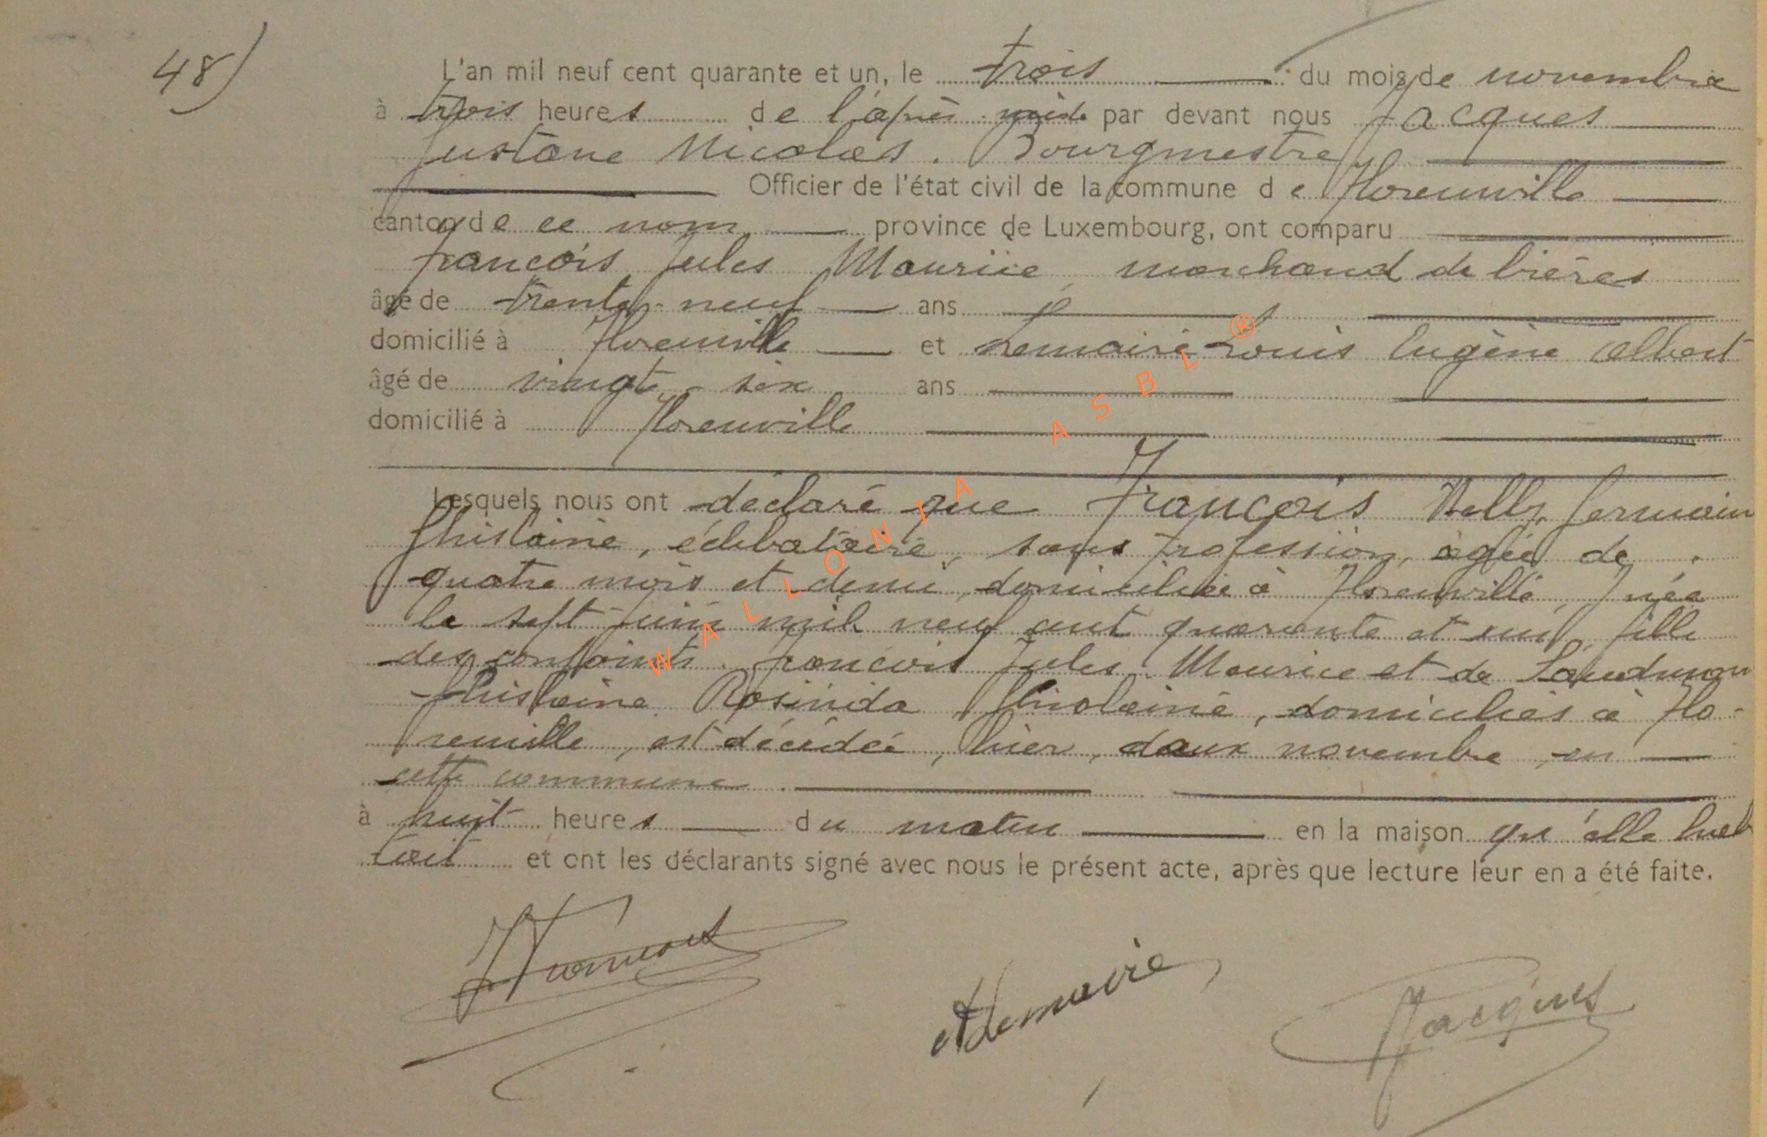 48)
L'an mil neuf cent quarante et un, le trois du mois de novembre
à trois heures de l'après-midi par devant nous Jacques
Justane Nicolas. Bourgmestre
Officier de l'état civil de la commune de Florenville
canton de ce nom province de Luxembourg, ont comparu
françois Jules Maurice marchand de bières
âgé de trente-neuf ans
domicilié à Florenville et Lemaire Louis Eugène Albert
âgé de vingt-six ans
domicilié à Florenville
Lesquels nous ont déclaré que François Nelly Germain
Ghislaine, célibataire, sans profession, âgée de
quatre mois et demi, domiciliée à Florenville, née
le sept juin mil neuf cent quarante et un, fille
des conjoints françois Jules Maurice et de
Ghislaine Rosinida Ghislaine, domiciliés à Flo-
renville, est décédée, hier, deux novembre, en
cette commune
à huit heures du matin en la maison qu'elle habi
tait et ont les déclarants signé avec nous le présent acte, après que lecture leur en a été faite.
Lemaire
Jacques
WALLONIA ASBL ®